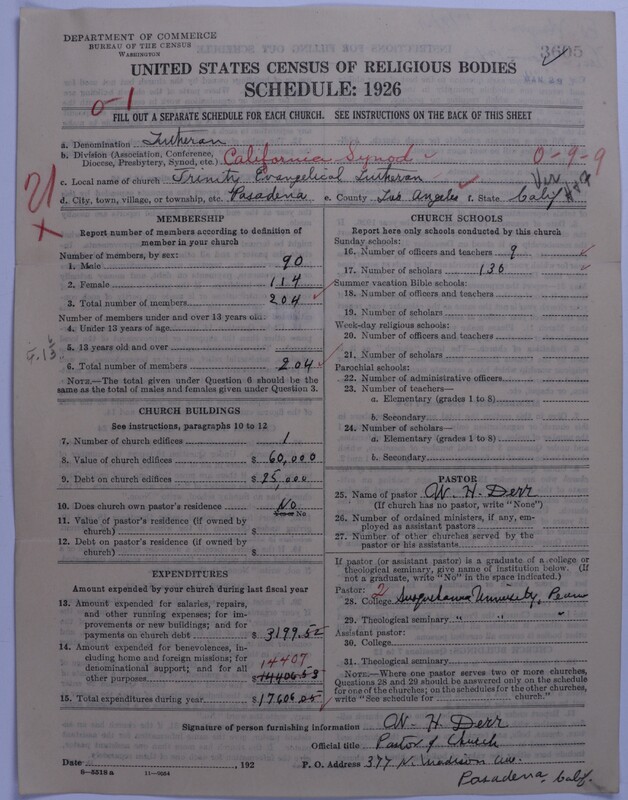 DEPARTMENT OF COMMERCE
BUREAU OF THE CENSUS
WASHINGTON
3605
UNITED STATES CENSUS OF RELIGIOUS BODIES
SCHEDULE: 1926
0-1
FILL OUT A SEPARATE SCHEDULE FOR EACH CHURCH. SEE INSTRUCTIONS ON THE BACK OF THIS SHEET
a. Denomination Lutheran
b. Division (Association, Conference, Diocese, Presbytery, Synod, etc.) California Synod
0-9-9
c. Local name of church Trinity Evangelical Lutheran
Ver
d. City, town, village, or township, etc. Pasadena e. County Los Angeles f. State Calif
21
X
MEMBERSHIP
Report number of members according to definition of member in your church
Number of members, by sex:
1. Male 90
2. Female 114
3. Total number of members 204
Number of members under and over 13 years old:
4. Under 13 years of age
5. 13 years old and over
6. Total number of members 204
NOTE.—The total given under Question 6 should be the same as the total of males and females given under Question 3.
CHURCH BUILDINGS
See instructions, paragraphs 10 to 12
7. Number of church edifices 1
8. Value of church edifices $ 60,000
9. Debt on church edifices $ 25,000
10. Does church own pastor's residence No
Yes or No
11. Value of pastor's residence (if owned by church) $
12. Debt on pastor's residence (if owned by church) $
EXPENDITURES
Amount expended by your church during last fiscal year
13. Amount expended for salaries, repairs, and other running expenses; for improvements or new buildings; and for payments on church debt $ 3199.52
14. Amount expended for benevolences, including home and foreign missions; for denominational support; and for all other purposes $ 14406.53
14407
15. Total expenditures during year $ 17606.05
CHURCH SCHOOLS
Report here only schools conducted by this church
Sunday schools:
16. Number of officers and teachers 9
17. Number of scholars 136
Summer vacation Bible schools:
18. Number of officers and teachers
19. Number of scholars
Week-day religious schools:
20. Number of officers and teachers
21. Number of scholars
Parochial schools:
22. Number of administrative officers
23. Number of teachers—
a. Elementary (grades 1 to 8)
b. Secondary
24. Number of scholars—
a. Elementary (grades 1 to 8)
b. Secondary
PASTOR
25. Name of pastor W. H. Derr
(If church has no pastor, write "None")
26. Number of ordained ministers, if any, employed as assistant pastors
27. Number of other churches served by the pastor or his assistants
If pastor (or assistant pastor) is a graduate of a college or theological seminary, give name of institution below. (If not a graduate, write "No" in the space indicated.)
Pastor: 2
28. College Susquehanna University, Penn
29. Theological seminary " " "
Assistant pastor:
30. College
31. Theological seminary
NOTE.—Where one pastor serves two or more churches, Questions 28 and 29 should be answered only on the schedule for one of the churches; on the schedules for the other churches, write "See schedule for ______ church."
Signature of person furnishing information W. H. Derr
Official title Pastor of Church
Date ______, 192 P. O. Address 377 N. Madison Ave.
Pasadena, Calif.
8-5318 a 11-9064